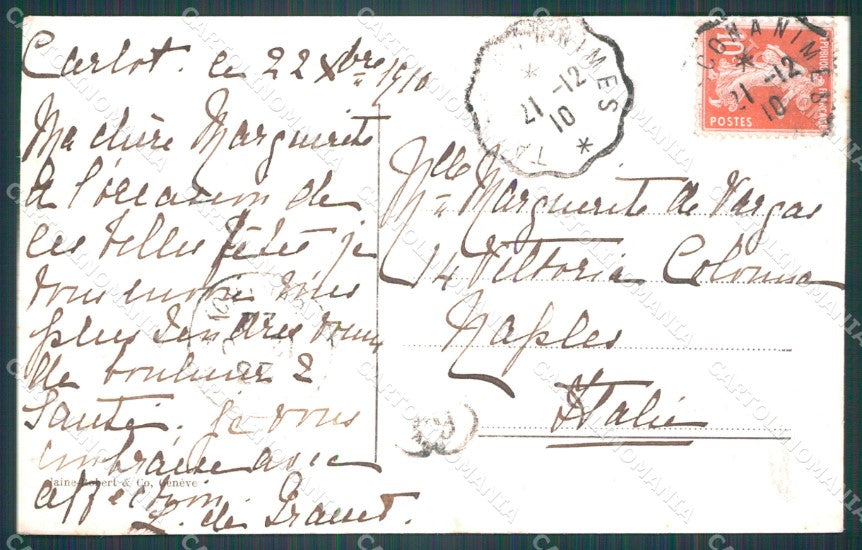 Carlot. ce 22 Xbre 1910
Ma chère Marguerite
A l'occasion de
ces belles fêtes je
vous envoie mes
plus tendres vœux
de bonheur &
santé. Je vous
embrasse avec
affection.
L. de
Jaine-Robert & Co, Genève
ONANIMES
21 -12
10
CONANIME
21 -12
10
10
POSTES
Mlle Marguerite de Vargas
14 Vittoria Colonna
Naples
Italie
CARTOLINOMANIA